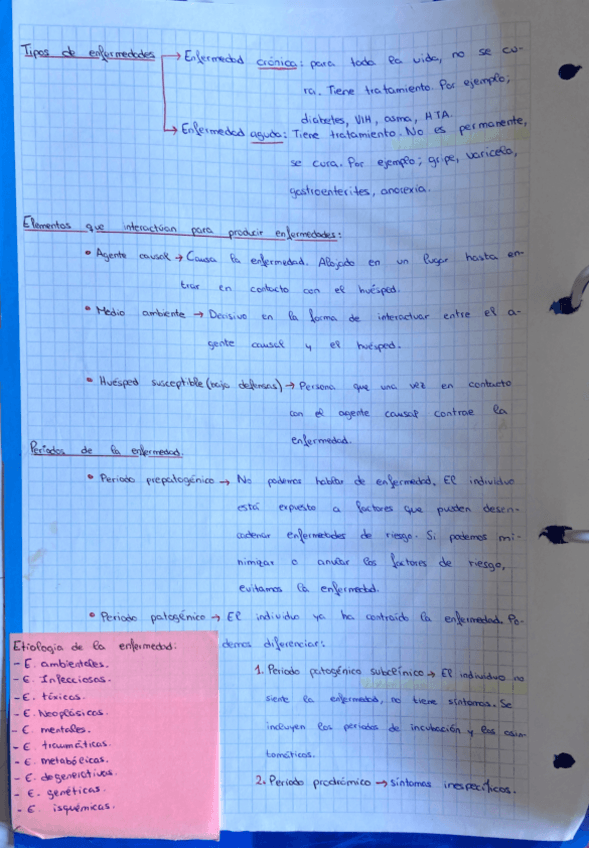 Tipos de enfermedades → Enfermedad crónica: para toda la vida, no se cu-
ra. Tiene tratamiento. Por ejemplo;
diabetes, VIH, asma, HTA.
→ Enfermedad aguda: Tiene tratamiento. No es permanente,
se cura. Por ejemplo; gripe, varicela,
gastroenterites, anorexia.
Elementos que interactúan para producir enfermedades:
• Agente causal → Causa la enfermedad. Alojado en un lugar hasta en-
trar en contacto con el huésped.
• Medio ambiente → Decisivo en la forma de interactuar entre el a-
gente causal y el huésped.
• Huésped susceptible (bajo defensas) → Persona que una vez en contacto
con el agente causal contrae la
enfermedad.
Periodos de la enfermedad.
• Periodo prepatogénico → No podemos hablar de enfermedad. El individuo
está expuesto a factores que pueden desen-
cadenar enfermedades de riesgo. Si podemos mi-
nimizar o anular los factores de riesgo,
evitamos la enfermedad.
• Periodo patogénico → El individuo ya ha contraído la enfermedad. Po-
demos diferenciar:
1. Periodo patogénico subclínico → El individuo no
siente la enfermedad, no tiene síntomas. Se
incluyen los periodos de incubación y los asin-
tomáticos.
2. Periodo prodrómico → síntomas inespecíficos.
Etiología de la enfermedad:
- E. ambientales.
- E. Infecciosos.
- E. tóxicas.
- E. Neoplásicas.
- E. mentales.
- E. traumáticas.
- E. metabólicas.
- E. degenerativas.
- E. genéticas.
- E. isquémicas.